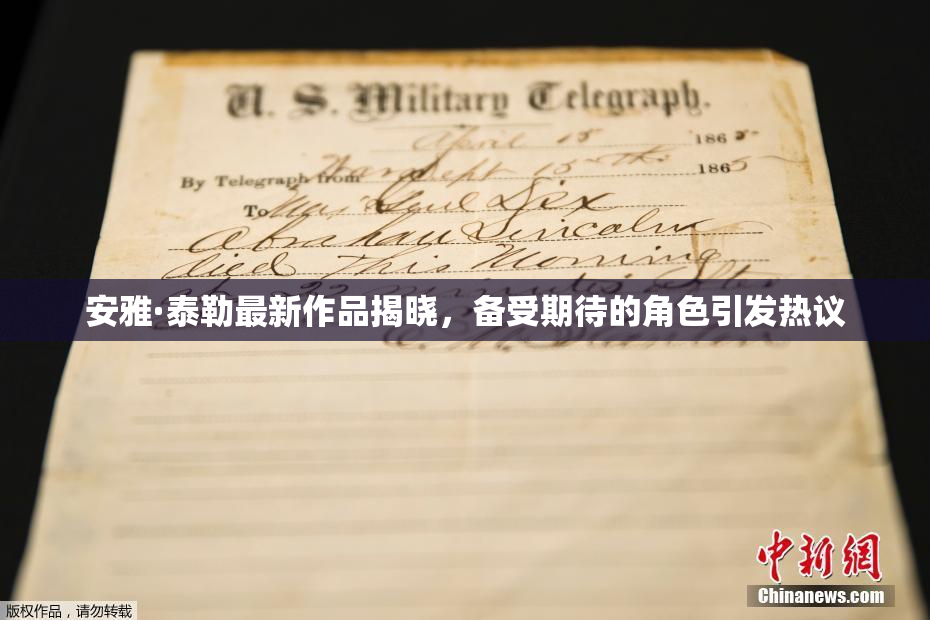 U. S. Military Telegraph.
April 15 1865.
By Telegraph from War Dept 15th 1865
To Maj Genl Dix
Abraham Lincoln
died This Morning
at 22 minutes after
安雅·泰勒最新作品揭晓，备受期待的角色引发热议
E. M. Stanton
中新网
Chinanews.com
版权作品，请勿转载